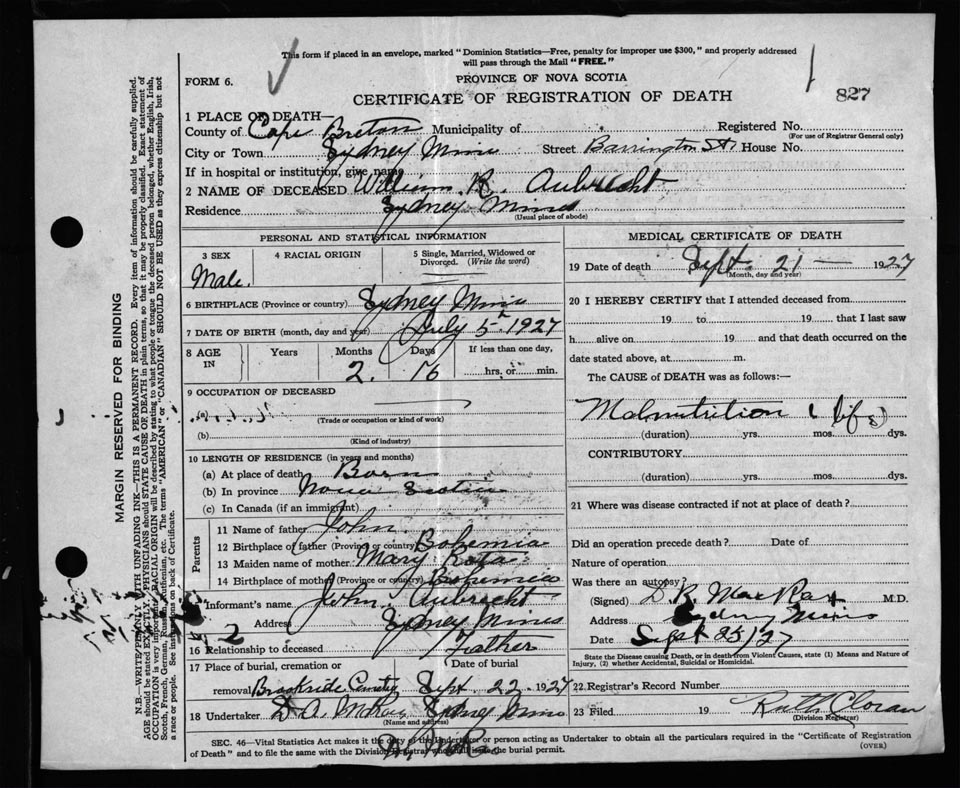 This form if placed in an envelope, marked "Dominion Statistics—Free, penalty for improper use $300," and properly addressed
will pass through the Mail "FREE."
FORM 6.
PROVINCE OF NOVA SCOTIA
827
CERTIFICATE OF REGISTRATION OF DEATH
1 PLACE OF DEATH—
County of Cape Breton Municipality of Registered No.
(For use of Registrar General only)
City or Town Sydney Mines Street Barrington St. House No.
If in hospital or institution, give name
2 NAME OF DECEASED William R. Aubrecht
Residence Sydney Mines
(Usual place of abode)
PERSONAL AND STATISTICAL INFORMATION
3 SEX 4 RACIAL ORIGIN 5 Single, Married, Widowed or
Divorced. (Write the word)
Male.
6 BIRTHPLACE (Province or country) Sydney Mines
7 DATE OF BIRTH (month, day and year) July 5 1927
8 AGE IN Years Months Days If less than one day,
2. 16 hrs. or min.
9 OCCUPATION OF DECEASED
(a)
(Trade or occupation or kind of work)
(b)
(Kind of industry)
10 LENGTH OF RESIDENCE (in years and months)
(a) At place of death Born
(b) In province Nova Scotia
(c) In Canada (if an immigrant)
Parents
11 Name of father John
12 Birthplace of father (Province or country) Bohemia
13 Maiden name of mother Mary Rota
14 Birthplace of mother (Province or country) Bohemia
Informant's name John Aubrecht
Address Sydney Mines
2
16 Relationship to deceased Father
17 Place of burial, cremation or Date of burial
removal Brookside Cemetery Sept. 22. 1927
18 Undertaker D A McKay Sydney Mines
(Name and address)
MEDICAL CERTIFICATE OF DEATH
19 Date of death Sept. 21 — 1927
(Month, day and year)
20 I HEREBY CERTIFY that I attended deceased from
19 to 19 that I last saw
h alive on 19 and that death occurred on the
date stated above, at m.
The CAUSE of DEATH was as follows:—
Malnutrition (life)
(duration) yrs. mos. dys.
CONTRIBUTORY
(duration) yrs. mos. dys.
21 Where was disease contracted if not at place of death?
Did an operation precede death? Date of
Nature of operation
Was there an autopsy?
(Signed) D R MacRae M.D.
Address Sydney Mines
Date Sept 23/27
State the Disease causing Death, or in death from Violent Causes, state (1) Means and Nature of
Injury, (2) whether Accidental, Suicidal or Homicidal.
22 Registrar's Record Number
23 Filed 19 Ruth Cloran
(Division Registrar)
SEC. 46—Vital Statistics Act makes it the duty of the Undertaker or person acting as Undertaker to obtain all the particulars required in the "Certificate of Registration
of Death" and to file the same with the Division Registrar who will issue the burial permit.
(OVER)
MARGIN RESERVED FOR BINDING
N.B.—WRITE PLAINLY WITH UNFADING INK—THIS IS A PERMANENT RECORD. Every item of information should be carefully supplied.
AGE should be stated EXACTLY. PHYSICIANS should STATE CAUSE OF DEATH in plain terms, so that it may be properly classified. Exact statement of
OCCUPATION is very important. RACIAL ORIGIN will be described by stating to what people or tongue the deceased person belonged, whether English, Irish,
Scotch, French, German, Russian, Ruthenian, etc. The terms "AMERICAN" or "CANADIAN" SHOULD NOT BE USED as they express citizenship but not
a race or people. See instructions on back of Certificate.